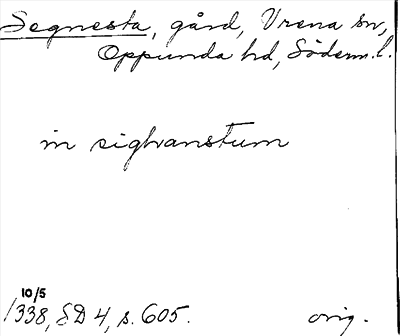 Segnesta, gård, Vrena sn,
Oppunda hd, Söderm. l.
in sighvanstum
10/5
1338, SD 4, s. 605. orig.